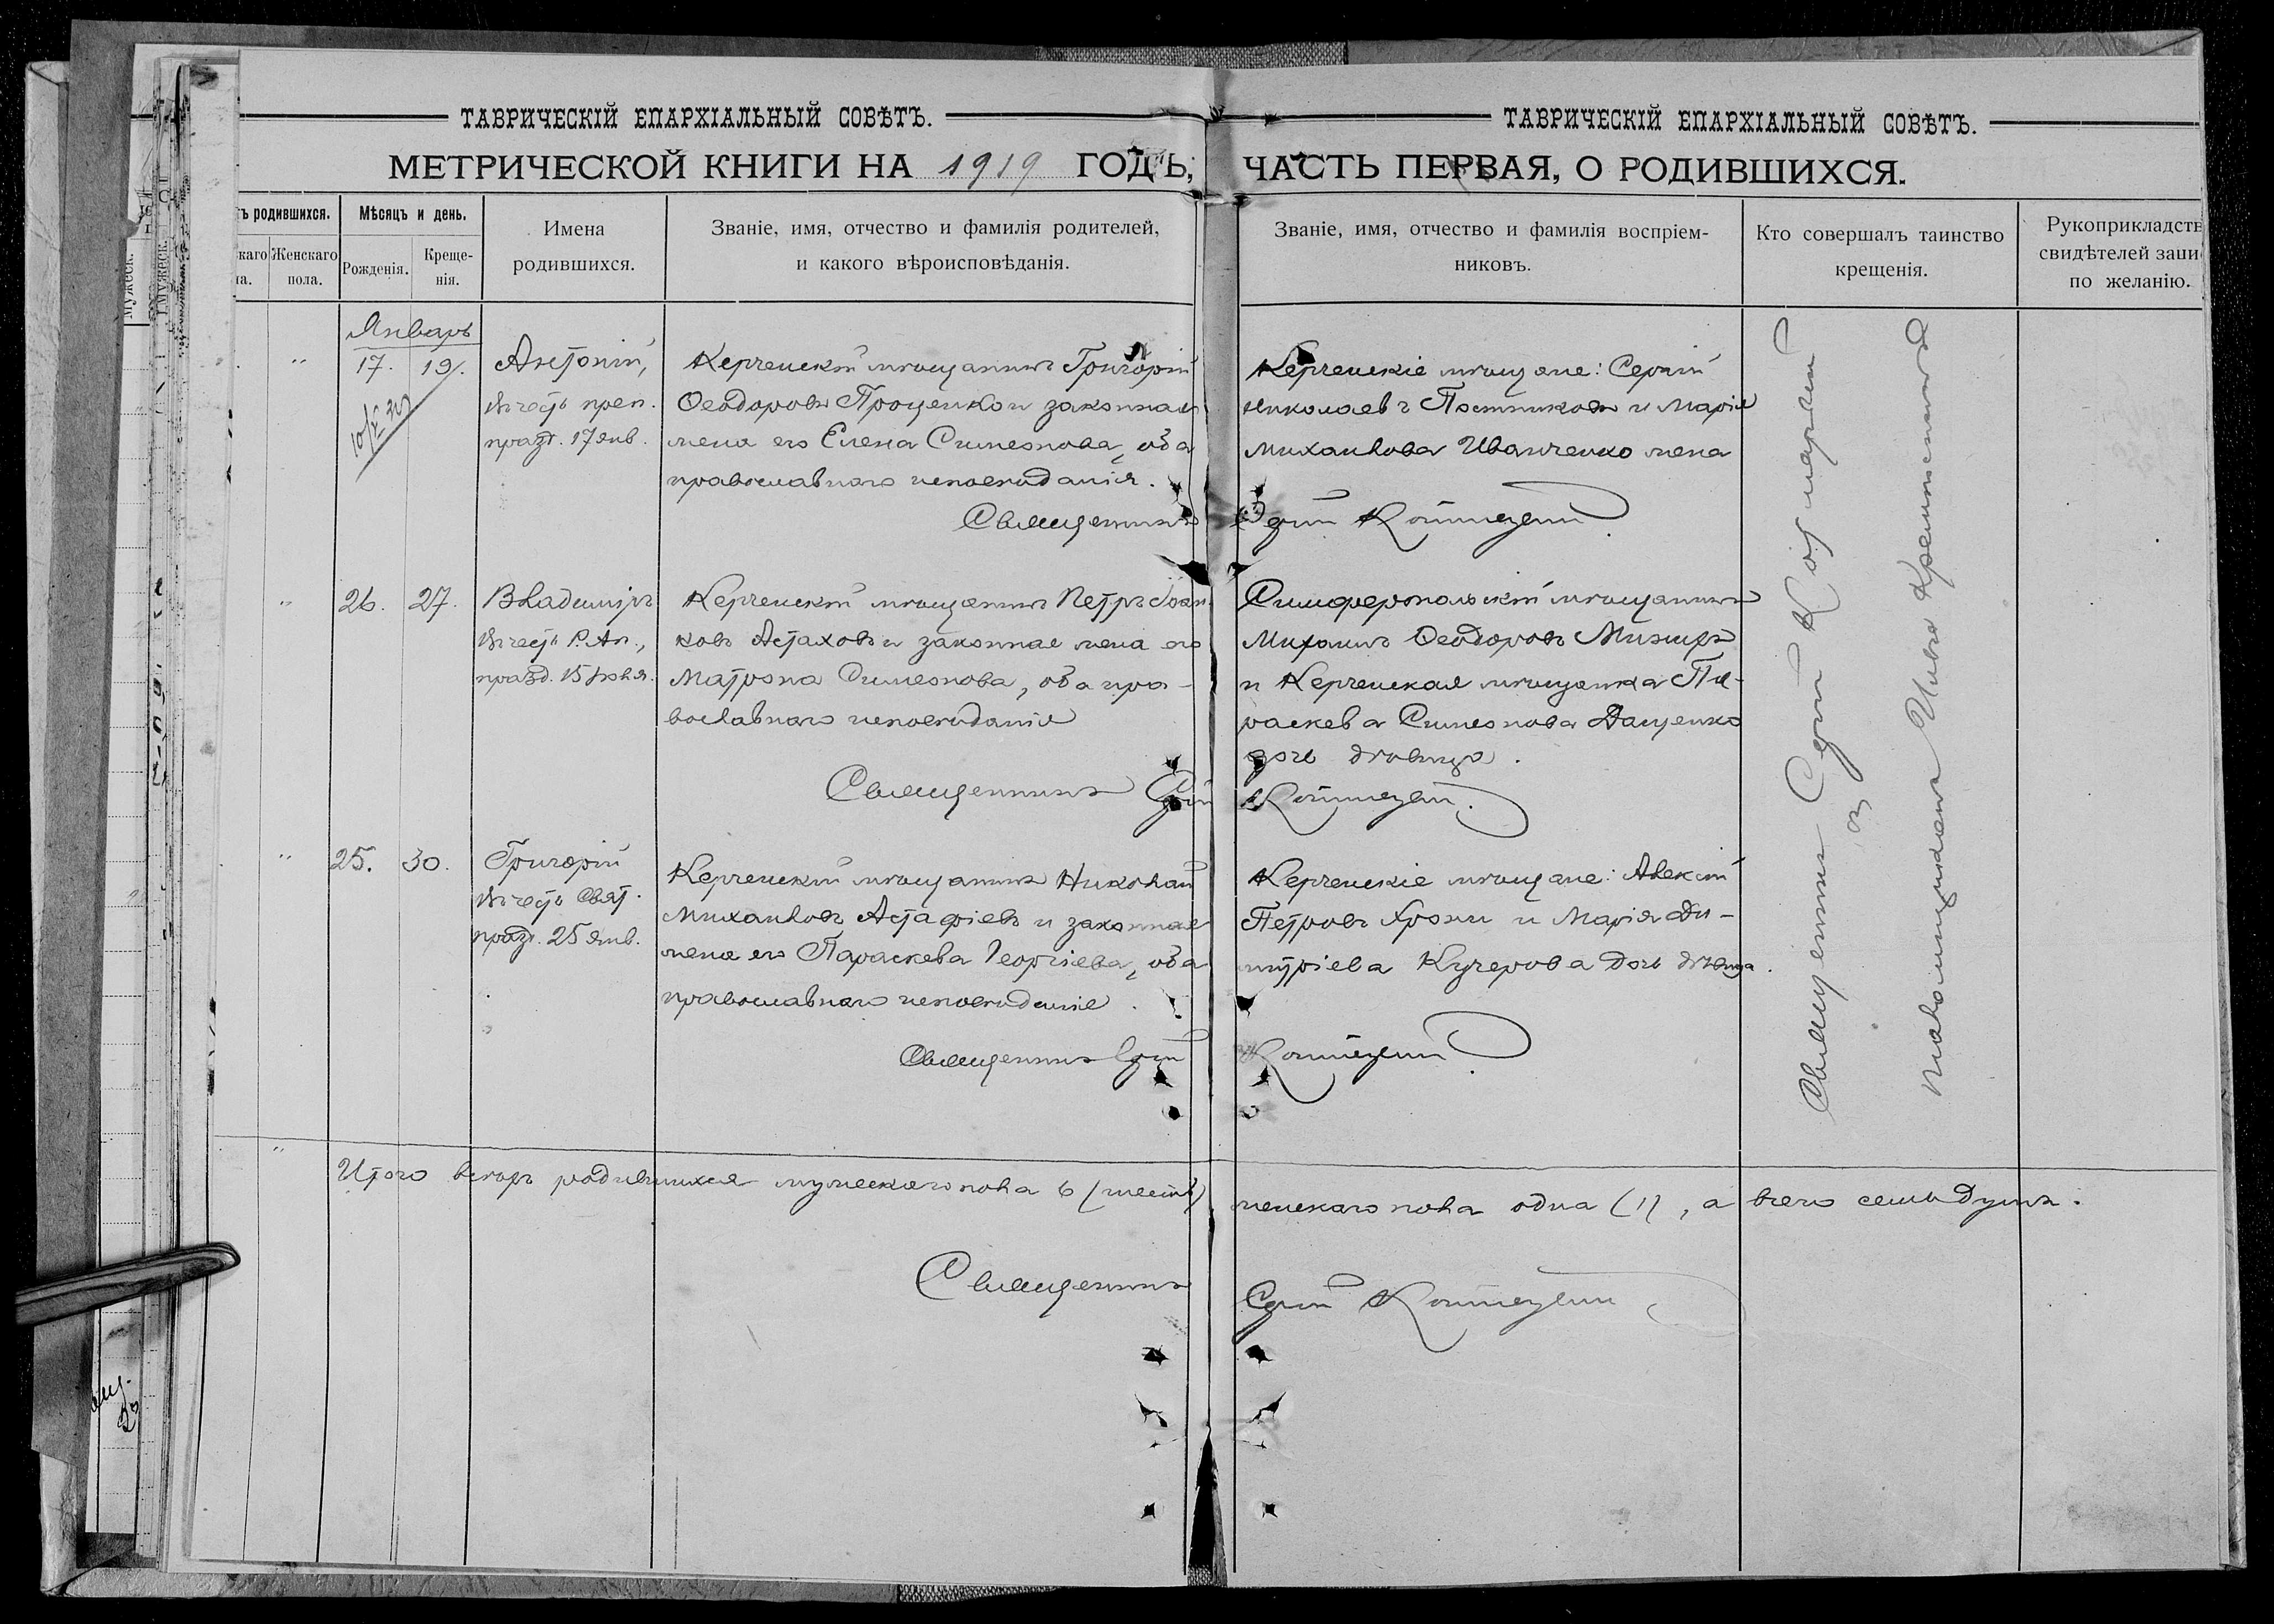 ТАВРИЧЕСКІЙ ЕПАРХІАЛЬНЫЙ СОВѢТЪ.
МЕТРИЧЕСКОЙ КНИГИ НА 1919 ГОДЪ,
ТАВРИЧЕСКІЙ ЕПАРХІАЛЬНЫЙ СОВѢТЪ.
ЧАСТЬ ПЕРВАЯ, О РОДИВШИХСЯ.
родившихся.
Женскаго
пола.
Мѣсяцъ и день.
Рожденія.
Креще-
нія.
Имена
родившихся.
Званіе, имя, отчество и фамилія родителей,
и какого вѣроисповѣданія.
Званіе, имя, отчество и фамилія воспріем-
никовъ.
Кто совершалъ таинство
крещенія.
Рукоприкладств
свидѣтелей запи
по желанію.
Январь
17. 19.
Антоній,
въ честь преп.
празд. 17 янв.
Керченскій мѣщанинъ Григорій
Ѳеодоровъ Проценко и законная
жена его Елена Симеонова, оба
православнаго исповѣданія.
Священникъ
Керченскіе мѣщане: Сергій
Николаевъ Постниковъ и Марія
Михаилова Иванченко жена
26. 27.
Владиміръ
въ честь Р. Ап.,
празд. 15 Іюля.
Керченскій мѣщанинъ Петръ Іоан-
новъ Астаховъ и законная жена его
Матрона Симеонова, оба пра-
вославнаго исповѣданія
Священникъ
Симферопольскій мѣщанинъ
Михаилъ Ѳеодоровъ
и Керченская мѣщанка Па-
раскева Симеонова Даценко
дочь дѣвица.
25. 30.
Григорій
въ честь Свят.
празд. 25 янв.
Керченскій мѣщанинъ Николай
Михаиловъ Астафіевъ и законная
жена его Параскева Георгіева, оба
православнаго исповѣданія.
Священникъ
Керченскіе мѣщане: Алексій
Петровъ и Марія Ди-
митріева Кучерова дочь дѣвица.
Священникъ
Псаломщикъ
Итого въ январѣ родившихся мужескаго пола 6 (шесть) женскаго пола одна (1), а всего семь душъ.
Священникъ